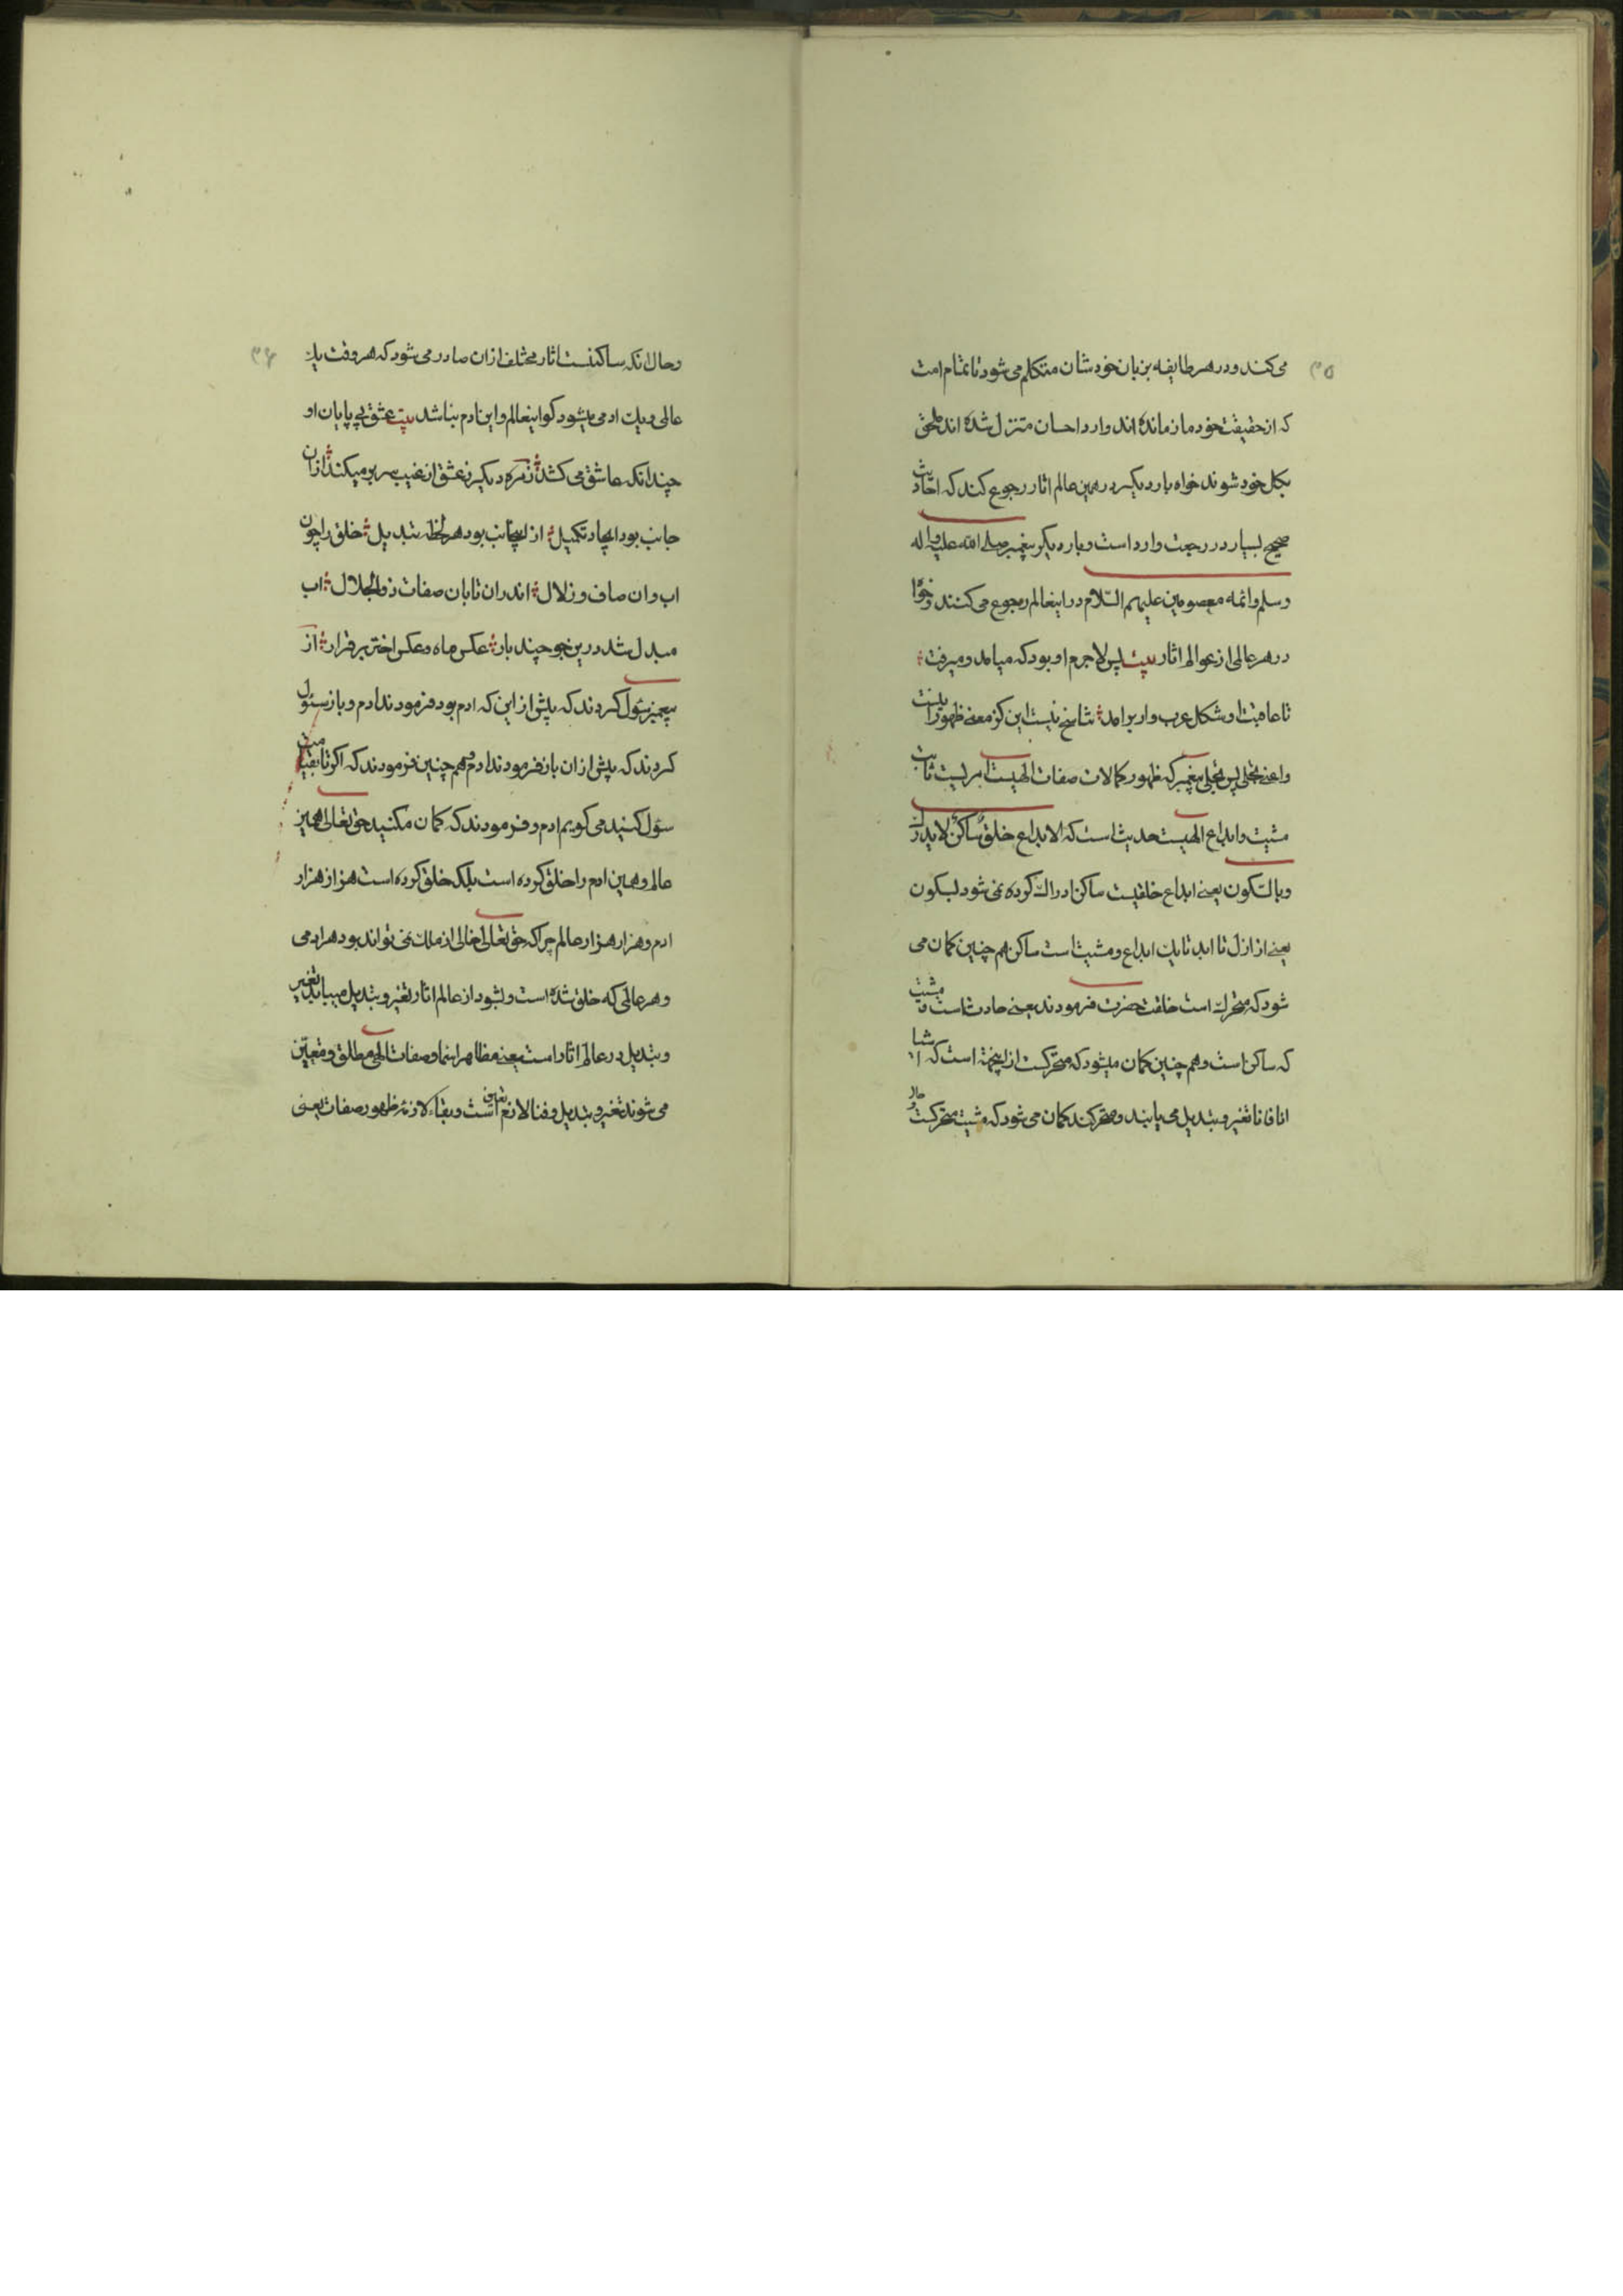 ۳۵
می‌کند و در هر طایفه بزبان خودشان متکلم می‌شود تا تمام امت
که از حقیقت خود باز مانده اند و از احسان متنزل شده اند ملحق
بکل خود شوند خواه بار دیکر در همین عالم اثار رجوع کند که احادیث
صحیح بسیار در رجعت وارد است و باره دیکر پیغمبر صلی الله علیه و اله
و سلم و ائمه معصومین علیهم السّلام در اینعالم رجوع می‌کنند و خواه
در هر عالمی از عوالم اثار بیت پس لاجرم او بود که میامد و میرفت
تا عاقبت او شکل عرب وار برامد تناسخ نیست این کز معنی ظهوراتیست
در عین تجلی پس تجلی پیغمبر که ظهور کمالات صفات الهیست امریست ثابت
مشیت و ابداع الهیست حدیث است که الابداع خلق ساکن لا یدرک
و بالسّکون یعنی ابداع خلقیست ساکن ادراک کرده نمی شود بسکون
یعنی از ازل تا ابد تا یک ابداع و مشیت است ساکن هم چنین کمان می
شود که متحرک است خلقت حضرت فرمودند یعنی حادث است و مشیت
که ساکن است و هم چنین کمان میشود که متحرکست از اینجهة است که اشیا
انا فانا تغیر و تبدیل می یابند و متحرکند کمان می شود که مشیت متحرکست
۳۶
و حال انکه ساکنست اثار مختلف ازان صادر می شود که هر وقت یک
عالمی و یک ادمی میشود کو اینعالم و این ادم نباشد بیت عشق بی پایان او
چندانکه عاشق می کشد زمرهٔ دیکر ز عشق از غیب سر بر میکند ازان
جانب بود ایجاد تکمیل از اینجانب بود هر لحظه تبدیل خلق را چون
اب دان صاف و زلال اندران تابان صفات ذوالجلال اب
مبدل شد درین جو چند بار عکس ماه و عکس اختر برقرار از
پیغمبر سئول کردند که پیش از این که ادم بود فرمودند ادم و باز سئول
کردند که پیش ازان باز فرمودند ادم و هم چنین فرمودند که اکر تا بقیامت
سئول کنید می کویم ادم و فرمودند که کمان مکنید حق تعالی همین
عالم و همین ادم را خلق کرده است بلکه خلق کرده است هزار هزار
ادم و هزار هزار عالم چرا که حق تعالی خالی از ملک نمی تواند بود هر ادمی
و هر عالمی که خلق شده است و بشود از عالم اثار تغیر و تبدیل مییابد تغیر
و تبدیل در عالم اثار است یعنی مظاهر اسما و صفات الهی مطلق و متعین
می شوند تغیر و تبدیل و فنا لازم تعین است و بقاء لازمهٔ ظهور صفات یعنی